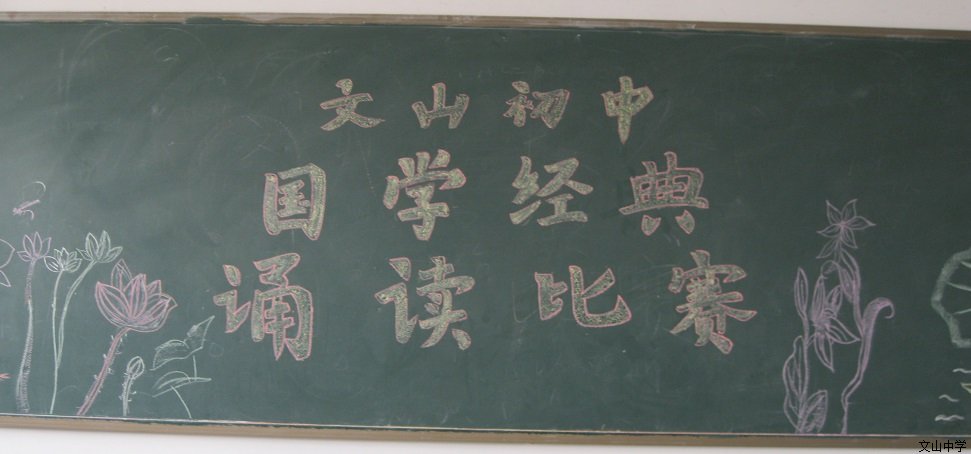 文山初中
国学经典
诵读比赛
文山中学